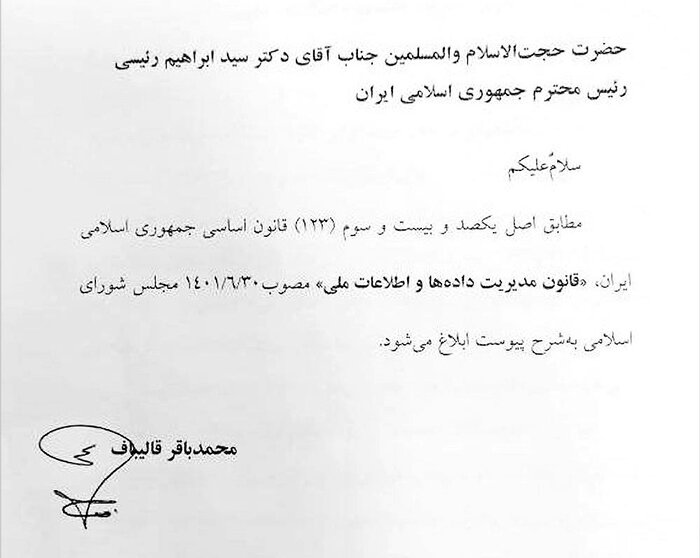 حضرت حجت‌الاسلام والمسلمین جناب آقای دکتر سید ابراهیم رئیسی
رئیس محترم جمهوری اسلامی ایران
سلامٌ‌علیکم
مطابق اصل یکصد و بیست و سوم (۱۲۳) قانون اساسی جمهوری اسلامی
ایران، «قانون مدیریت داده‌ها و اطلاعات ملی» مصوب ۱۴۰۱/۶/۳۰ مجلس شورای
اسلامی به‌شرح پیوست ابلاغ می‌شود.
محمدباقر قالیباف